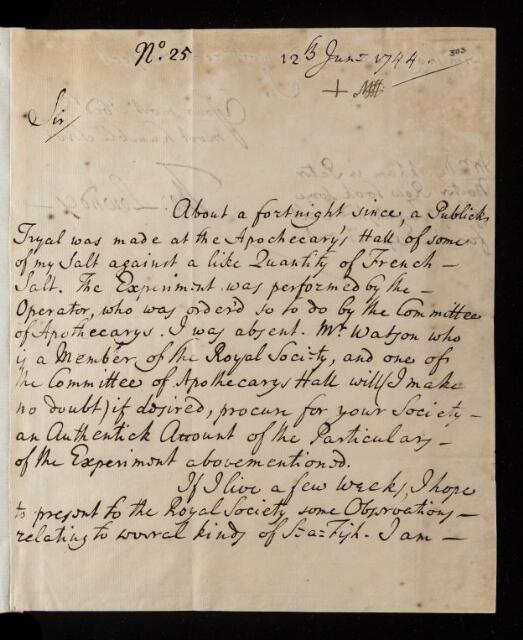 No. 25
12th June 1744.
303
+ Mtt:
Sir
About a fortnight since, a Publick
Tryal was made at the Apothecary's Hall of some
of my Salt against a like Quantity of French –
Salt. The Experiment was performed by the –
Operator, who was order'd so to do by the Committee
of Apothecarys. I was absent. Mr. Watson who
is a Member of the Royal Society, and one of
the Committee of Apothecarys Hall will (I make
no doubt) if desired, procure for your Society –
an Authentick Account of the Particulars –
of the Experiment abovementioned.
If I live a few Weeks, I hope
to present to the Royal Society some Observations –
relating to several kinds of Sea-Fish. I am –